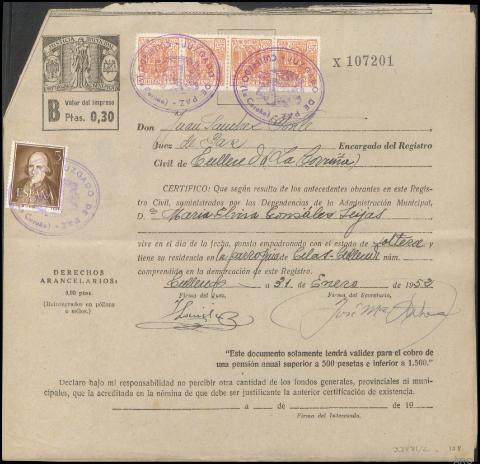 JUSTICIA MUNICIPAL
B Valor del impreso
Ptas. 0,30
JUZGADO DE PAZ
CULLEREDO
(La Coruña)
X 107201
ESPAÑA
Don Juan
Juez de Paz Encargado del Registro
Civil de Culleredo (La Coruña)
CERTIFICO: Que según resulta de los antecedentes obrantes en este Registro
Civil, suministrados por las Dependencias de la Administración Municipal,
D.ª María Elvira González Seijas
vive en el día de la fecha, consta empadronado con el estado de soltera y
tiene su residencia en la parroquia de Celas-Culleredo núm.
comprendida en la demarcación de este Registro.
Culleredo a 31 de Enero de 1953
Firma del Juez, Firma del Secretario,
José Mª
DERECHOS
ARANCELARIOS:
0,90 ptas.
(Reintegrados en póliza
o sellos.)
"Este documento solamente tendrá validez para el cobro de
una pensión anual superior a 500 pesetas e inferior a 1.500."
Declaro bajo mi responsabilidad no percibir otra cantidad de los fondos generales, provinciales ni muni-
cipales, que la acreditada en la nómina de que debe ser justificante la anterior certificación de existencia.
a de de 19
Firma del Interesado.